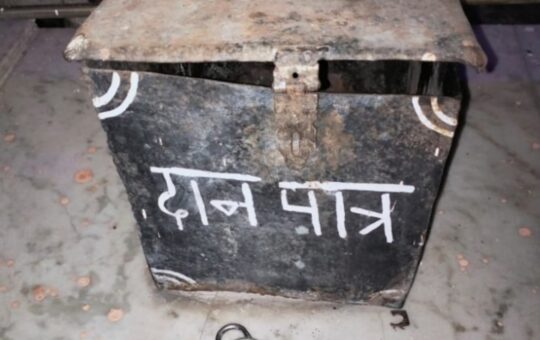 दान पात्र